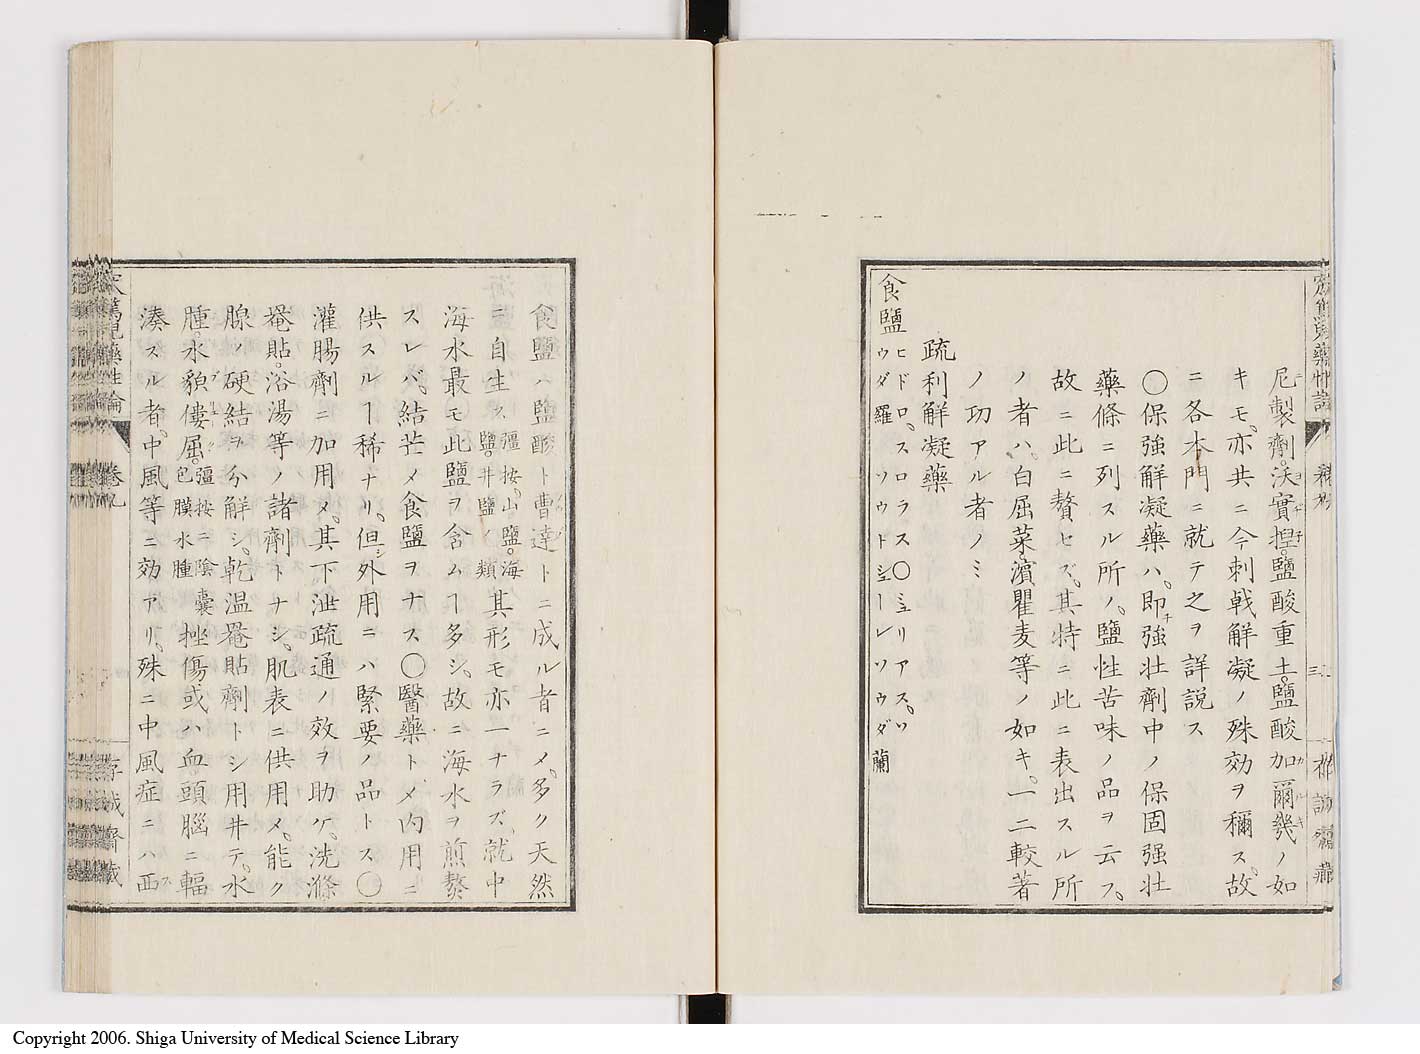 尼製劑。沃實揑。鹽酸重土。鹽酸加爾幾ノ如
キモ、亦共ニ今刺戟解凝ノ殊効ヲ稱ス。故
ニ各本門ニ就テ之ヲ詳説ス
〇保強解凝藥ハ、即チ強壯劑中ノ保固强壯
藥條ニ列スル所ノ、鹽性苦味ノ品ヲ云フ。
故ニ此ニ贅セズ、其特ニ此ニ表出スル所
ノ者ハ、白屈菜。濱瞿麦等ノ如キ、一二較著
ノ功アル者ノミ
疏利解凝藥
食鹽 ヒドロ、スロラス〇ミュリアス、ソ
ウダ 羅 ソウトシューレソウダ 蘭
食鹽ハ鹽酸ト曹達トニ成ル者ニメ、多ク天然
ニ自生ス 彊按、山鹽。海
鹽。井鹽ノ類 其形モ亦一ナラズ、就中
海水最モ此鹽ヲ含ムヿ多シ、故ニ海水ヲ煎熬
スレバ、結芒メ食鹽ヲナス〇醫藥トメ内用ニ
供スルヿ稀ナリ、但シ外用ニハ緊要ノ品トス〇
灌腸劑ニ加用メ、其下泄疏通ノ效ヲ助ケ、洗滌
罨貼。浴湯等ノ諸劑トナシ、肌表ニ供用メ、能ク
腺ノ硬結ヲ分解シ、乾温罨貼劑トシ用井テ、水
腫。水貌僂屈。 彊按ニ陰囊
包膜水腫 挫傷、或ハ血頭腦ニ輻
湊スル者、中風等ニ効アリ、殊ニ中風症ニハ西
藥性論 卷九
存誠齋藏
Copyright 2006. Shiga University of Medical Science Library